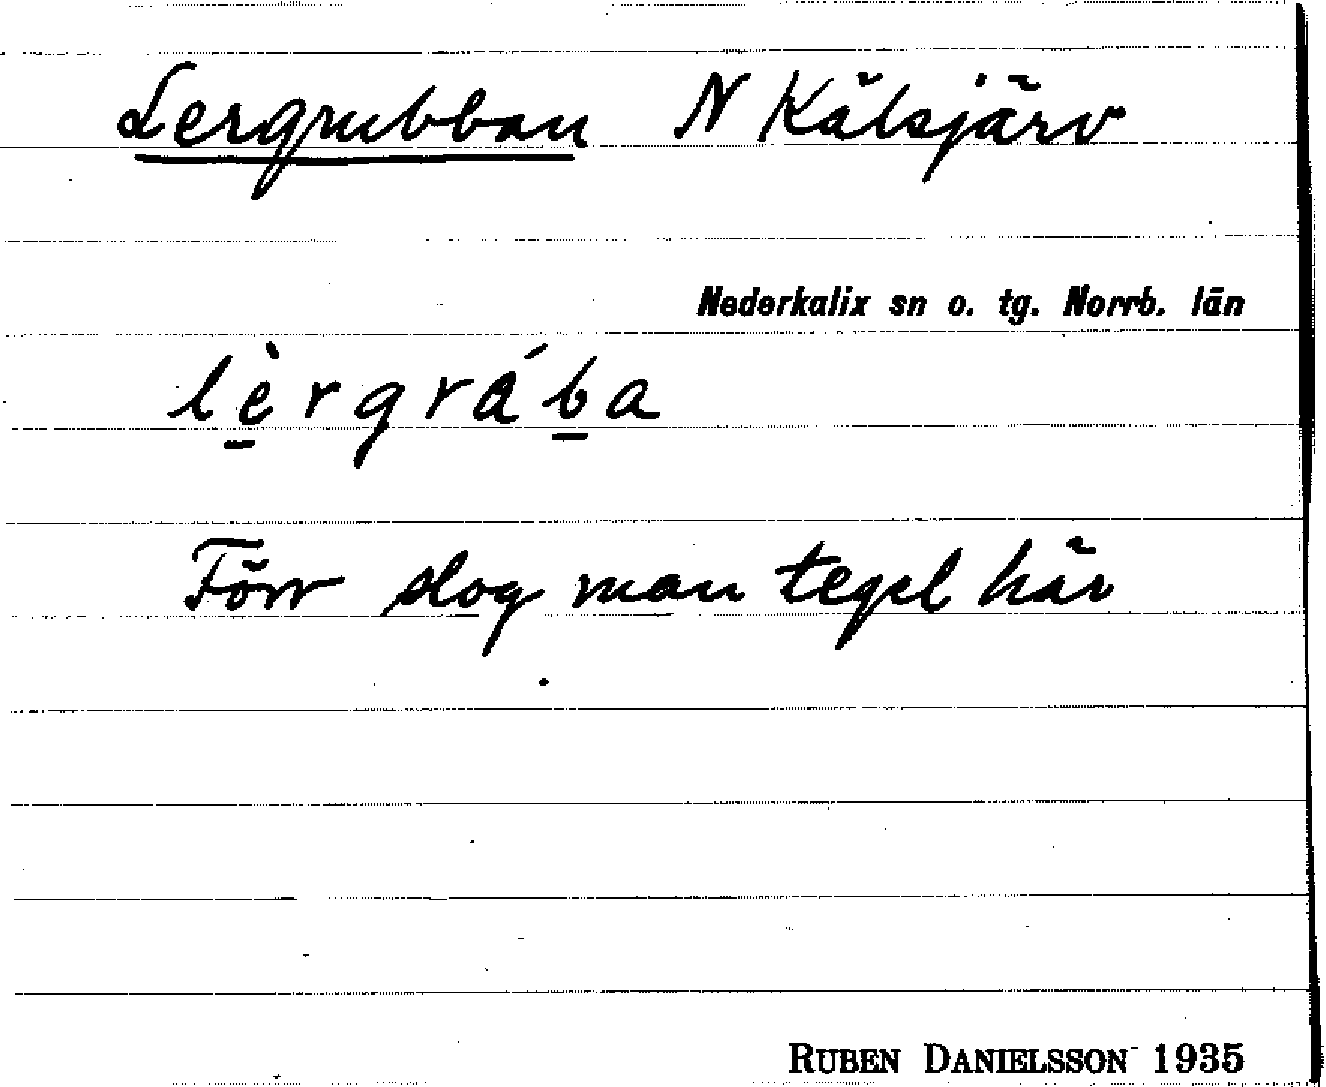 Lergrubban N Kälsjärv
Nederkalix sn o. tg. Norrb. län
lèrgrába
Förr slog man tegel här
RUBEN DANIELSSON 1935